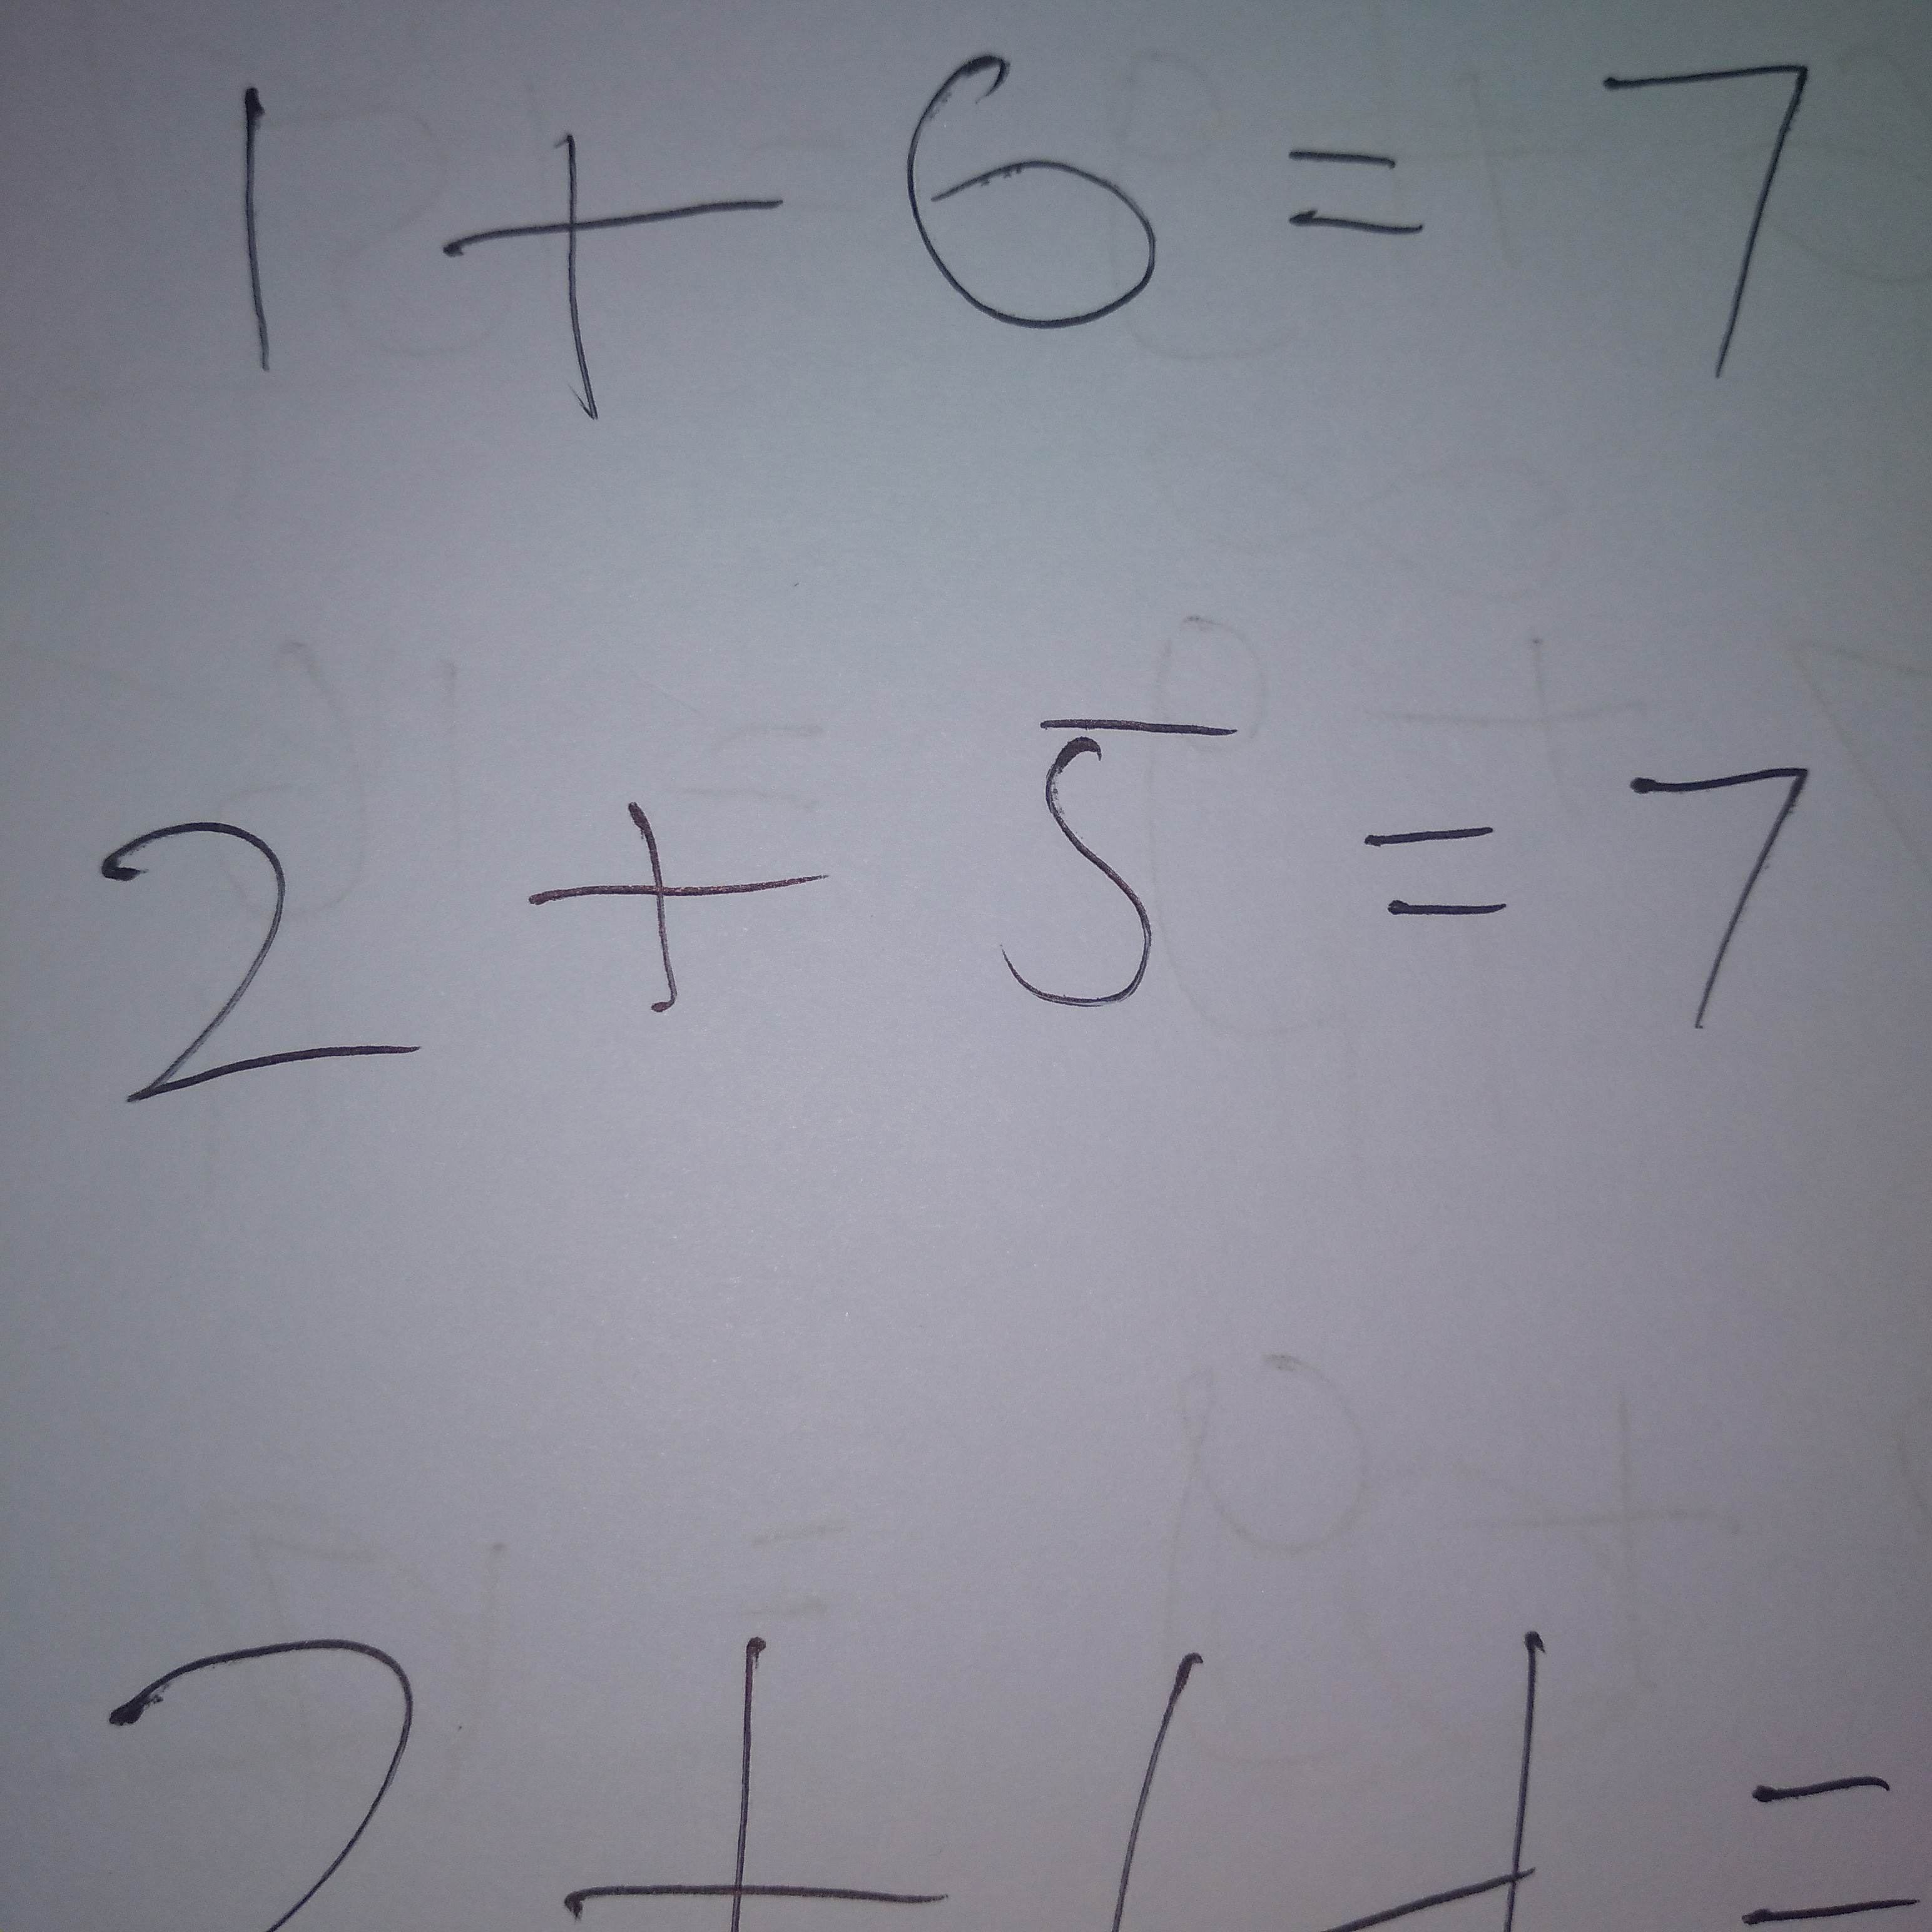 1 + 6 = 7
2 + 5 = 7
2 + 4 =